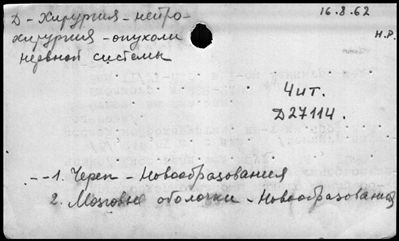 Д - Хирургия - нейро-
хирургия - опухоли
нервной системы
16.8.62
Н.Р.
Чит.
Д27114.
1. Череп - Новообразования
2. Мозговые оболочки - Новообразования